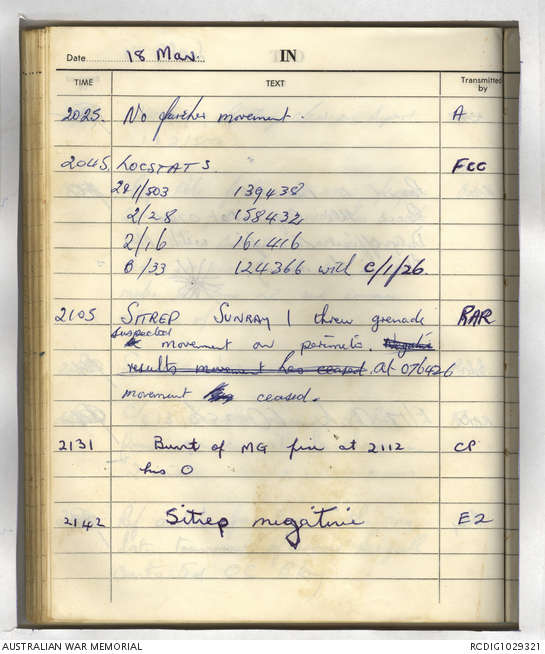 Date 18 Mar. IN
TIME TEXT Transmitted by
2025. No further movement. A
2045. LOCSTATS. FCC
2d 1/503 139438
2/28 158432
2/16 161416
B/33 124366 with C/1/26.
2105 SITREP SUNRAY 1 threw grenade RAR
suspected
movement on perimeter. Negative
results movement has ceased. At 076426
movement ceased.
2131 Burst of MG fire at 2112 CP
hrs O
2142 Sitrep negative E2
AUSTRALIAN WAR MEMORIAL RCDIG1029321